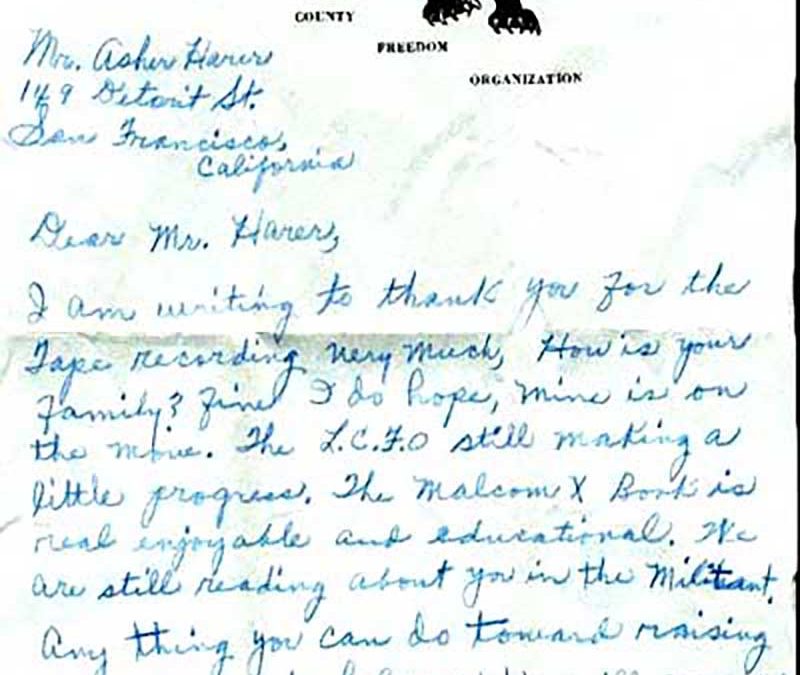 COUNTY
FREEDOM
ORGANIZATION
Mr. Asher Harer
149 Detroit St.
San Francisco,
California
Dear Mr. Harer,
I am writing to thank you for the
Tape recording very much, How is your
Family? Fine I do hope, Mine is on
the move. The L.C.F.O still making a
little progress. The Malcom X Book is
real enjoyable and educational. We
are still reading about you in the Militant.
Any thing you can do toward raising